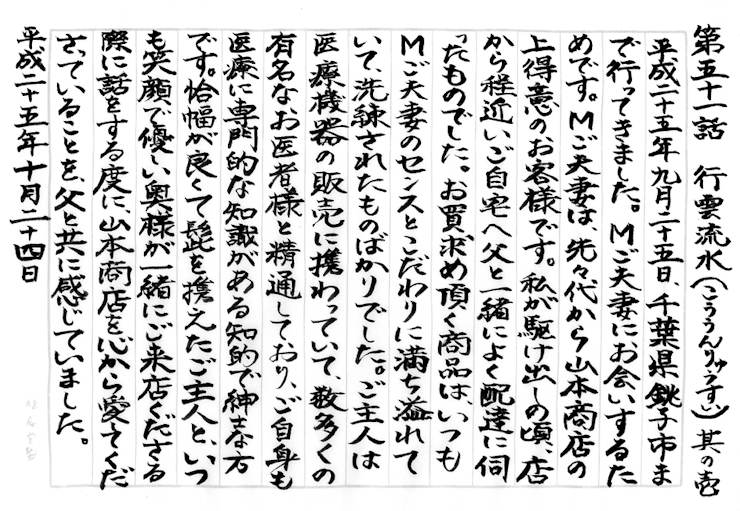 第五十一話　行雲流水(こううんりゅうすい)其の壱
平成二十五年九月二十五日、千葉県銚子市ま
で行ってきました。Mご夫妻にお会いするた
めです。Mご夫妻は、先々代から山本商店の
上得意のお客様です。私が駆け出しの頃、店
から程近いご自宅へ父と一緒によく配達に伺
ったものでした。お買求め頂く商品は、いつも
Mご夫妻のセンスとこだわりに満ち溢れて
いて洗練されたものばかりでした。ご主人は
医療機器の販売に携わっていて、数多くの
有名なお医者様と精通しており、ご自身も
医療に専門的な知識がある知的で紳士な方
です。恰幅が良くて髭を携えたご主人と、いつ
も笑顔で優しい奥様が一緒にご来店くださる
際に話をする度に、山本商店を心から愛てくだ
さっていることを、父と共に感じていました。
平成二十五年十月二十四日